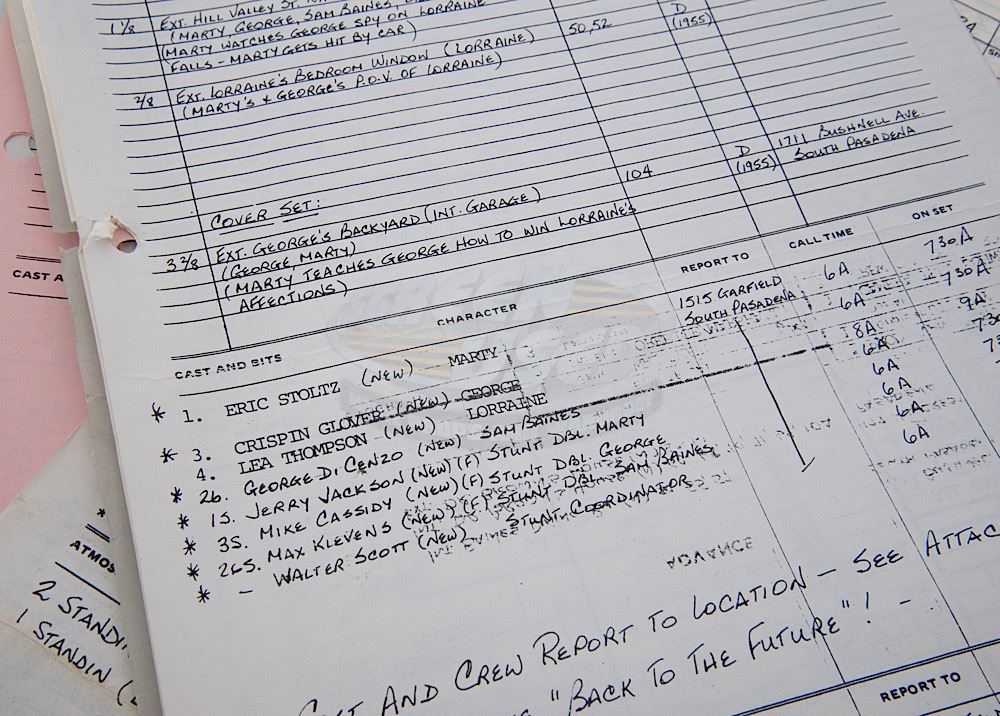 1 1/8 EXT. HILL VALLEY ST.
(MARTY, GEORGE, SAM BAINES,
(MARTY WATCHES GEORGE SPY ON LORRAINE
FALLS - MARTY GETS HIT BY CAR)
D
(1955)
2/8 EXT. LORRAINE'S BEDROOM WINDOW (LORRAINE) 50,52
(MARTY'S & GEORGE'S P.O.V. OF LORRAINE)
COVER SET:
3 2/8 EXT. GEORGE'S BACKYARD (INT. GARAGE) 104 D 1711 BUSHNELL AVE.
(GEORGE, MARTY) (1955) SOUTH PASADENA
(MARTY TEACHES GEORGE HOW TO WIN LORRAINE'S
AFFECTIONS)
CAST AND BITS CHARACTER REPORT TO CALL TIME ON SET
* 1. ERIC STOLTZ (NEW) MARTY 1515 GARFIELD 6A 730A
SOUTH PASADENA
* 3. CRISPIN GLOVER (NEW) GEORGE 6A 730A
4. LEA THOMPSON (NEW) LORRAINE 8A 9A
* 26. GEORGE DI CENZO (NEW) SAM BAINES 6A
* 1S. JERRY JACKSON (NEW) (F) STUNT DBL. MARTY 6A
* 3S. MIKE CASSIDY (NEW) (F) STUNT DBL. GEORGE 6A
* 26S. MAX KLEVENS (NEW) (F) STUNT DBL. SAM BAINES 6A
* - WALTER SCOTT (NEW) STUNT COORDINATOR 6A
ADVANCE
AND CREW REPORT TO LOCATION - SEE ATTAC
"BACK TO THE FUTURE"! -
REPORT TO
CAST A
*
ATMOS
2 STANDI
1 STANDIN (